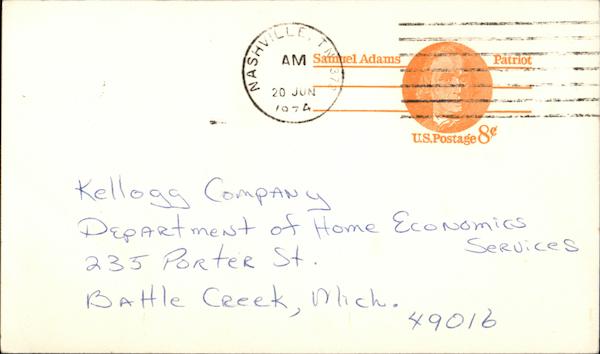 NASHVILLE, TN 372
AM
20 JUN
1974
Samuel Adams Patriot
U.S. Postage 8¢
Kellogg Company
Department of Home Economics
Services
235 Porter St.
Battle Creek, Mich.
49016